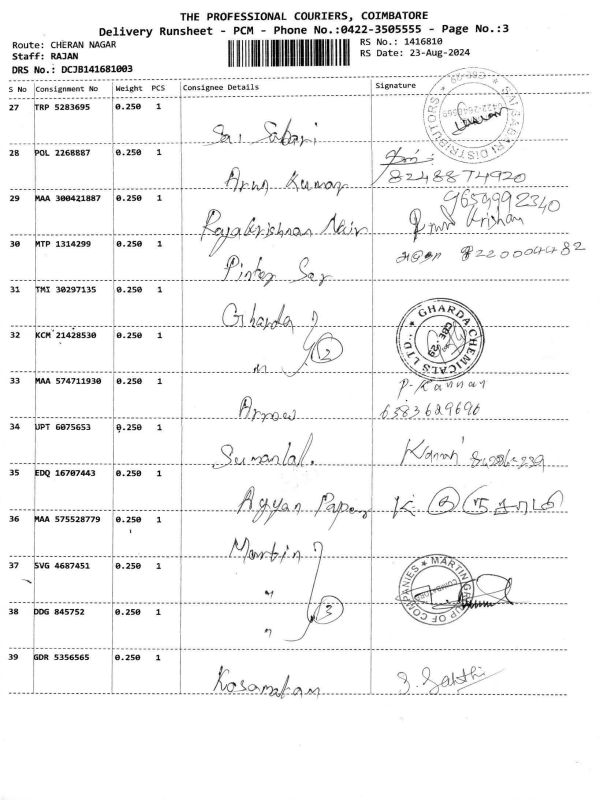 THE PROFESSIONAL COURIERS, COIMBATORE
Delivery Runsheet - PCM - Phone No.:0422-3505555 - Page No.:3
Route: CHERAN NAGAR
RS No.: 1416810
Staff: RAJAN
RS Date: 23-Aug-2024
DRS No.: DCJB141681003
S No Consignment No Weight PCS Consignee Details Signature
27 TRP 5283695 0.250 1 Sai Sabari
SAI SABARI DISTRIBUTORS
28 POL 2268887 0.250 1 Arun Kumar
8248874920
29 MAA 300421887 0.250 1 Rajakrishnan Nair
9659992340
30 MTP 1314299 0.250 1 Pinter Sar
8220004482
31 TMI 30297135 0.250 1 Gharda
GHARDA CHEMICALS LTD.,
CBE-29
32 KCM 21428530 0.250 1 " 2
33 MAA 574711930 0.250 1 Arrow
P. Kannan
6383629690
34 UPT 6075653 0.250 1 Sumanlal.
35 EDQ 16707443 0.250 1 Ayyan Paper
36 MAA 575528779 0.250 1 Martin
37 SVG 4687451 0.250 1 "
MARTIN GROUP OF COMPANIES
38 DDG 845752 0.250 1 " 3
39 GDR 5356565 0.250 1 Kosamattam
S. Sakthi